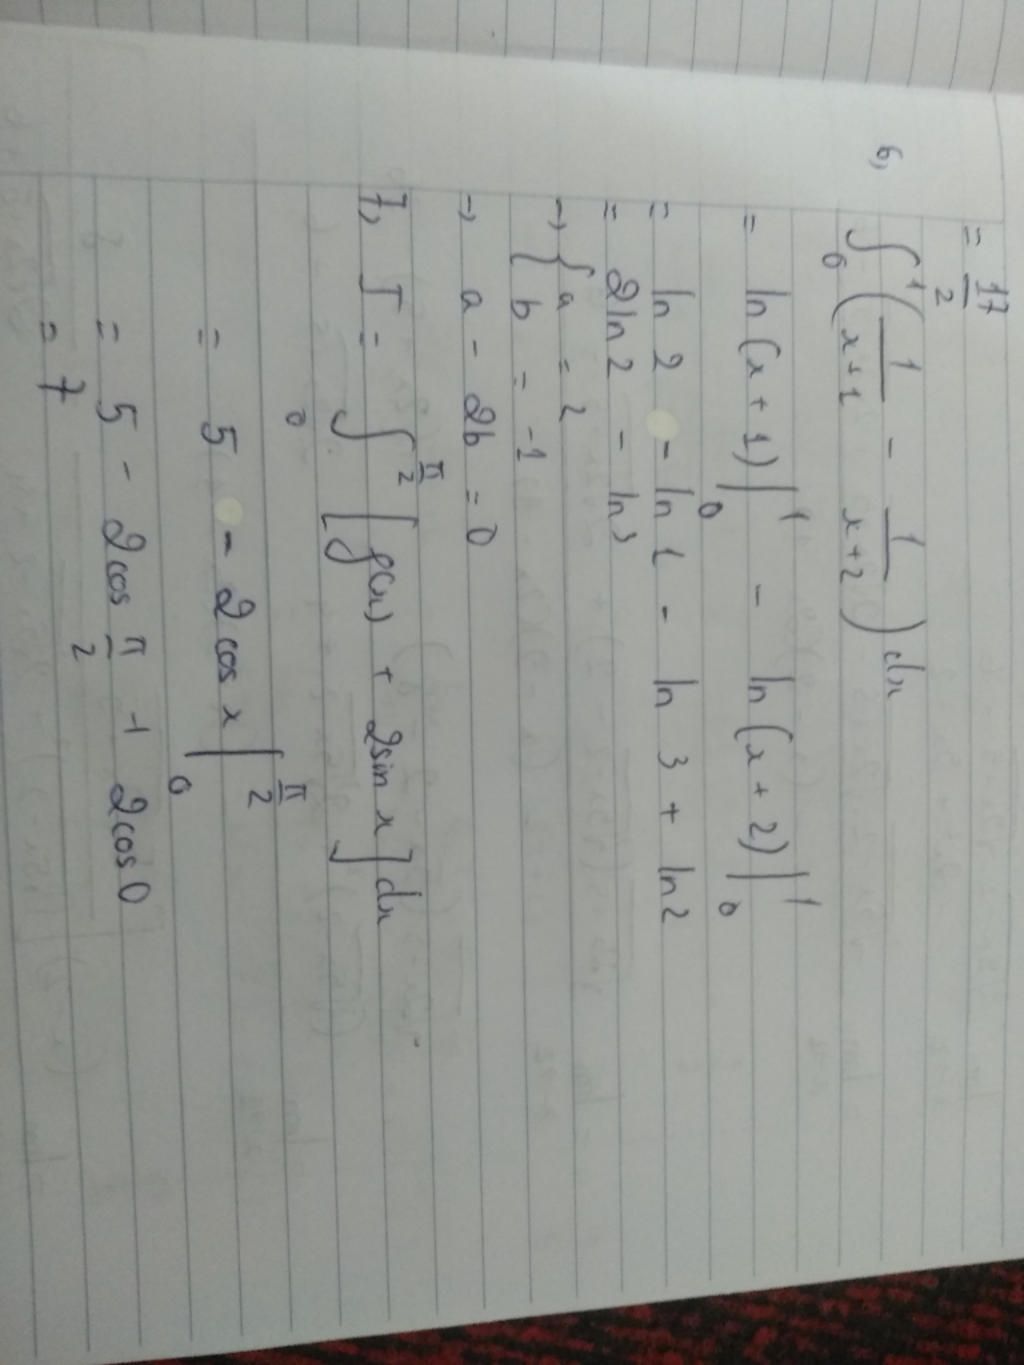 = 17/2
6, ∫₀¹ (1/(x+1) - 1/(x+2)) dx
= ln(x+1)|₀¹ - ln(x+2)|₀¹
= ln 2 - ln 1 - ln 3 + ln 2
= 2 ln 2 - ln 3
→ { a = 2
{ b = -1
→ a - 2b = 0
7, I = ∫₀^(π/2) [f(x) + 2sin x] dx
= 5 - 2cos x |₀^(π/2)
= 5 - 2cos π/2 + 2cos 0
= 7